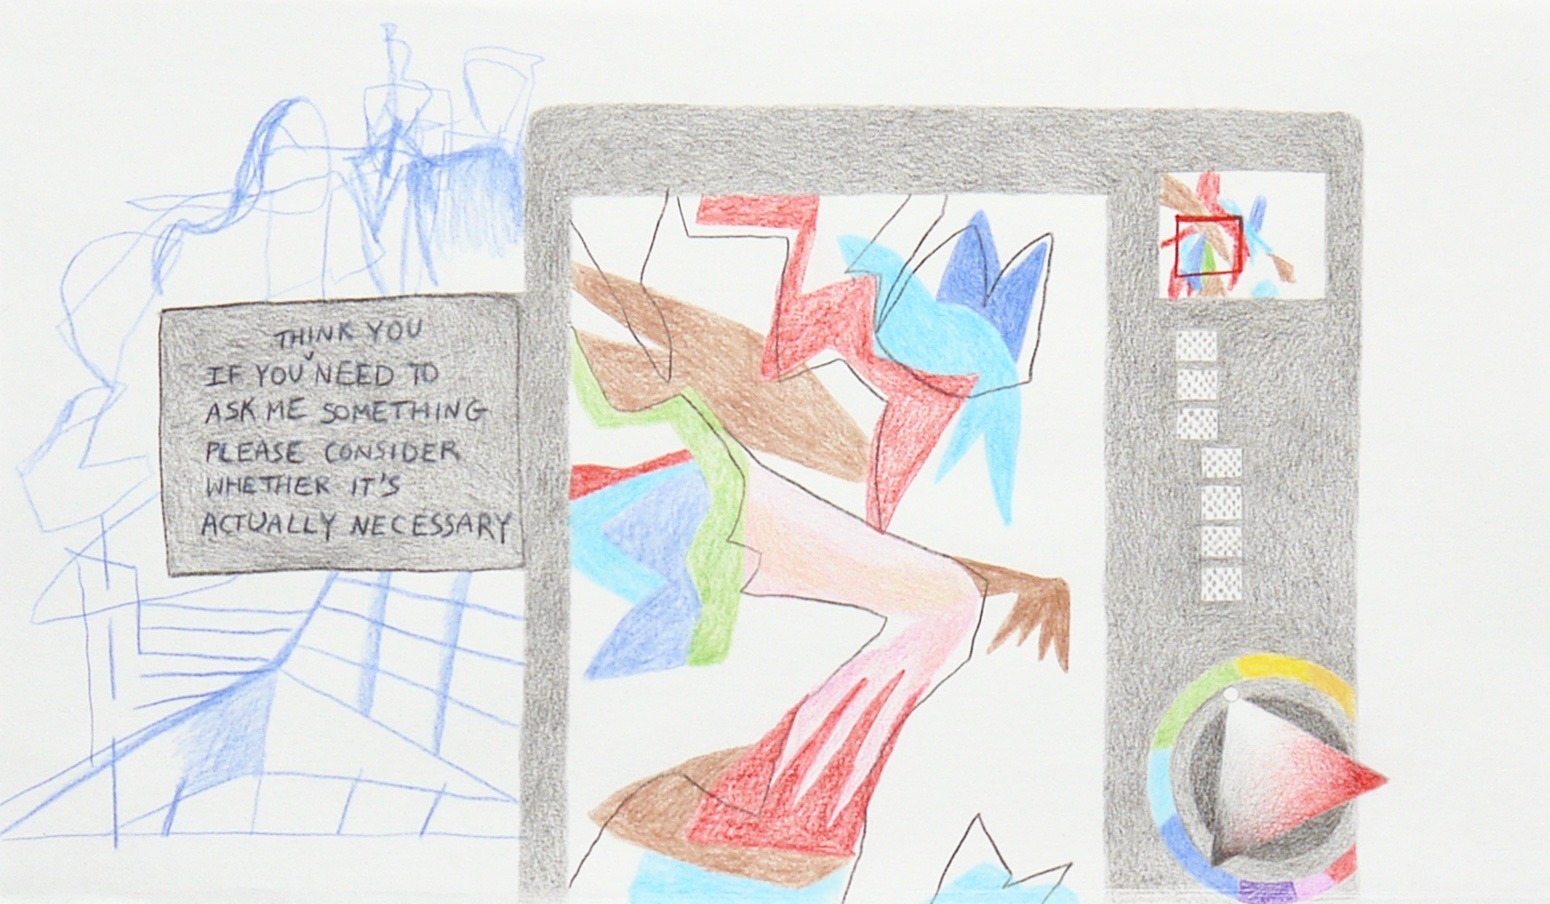 THINK YOU
IF YOU NEED TO
ASK ME SOMETHING
PLEASE CONSIDER
WHETHER IT'S
ACTUALLY NECESSARY